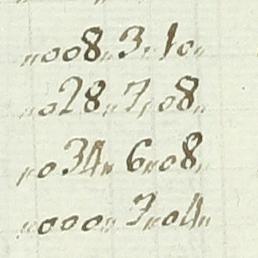 "008"3"10"
"028"7"08"
"034"6"08"
"000"3"04"